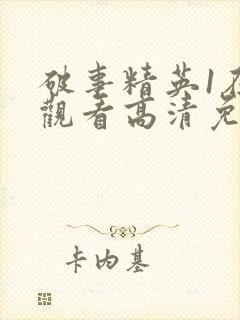 破事精英1在
觀看高清免
卡内基